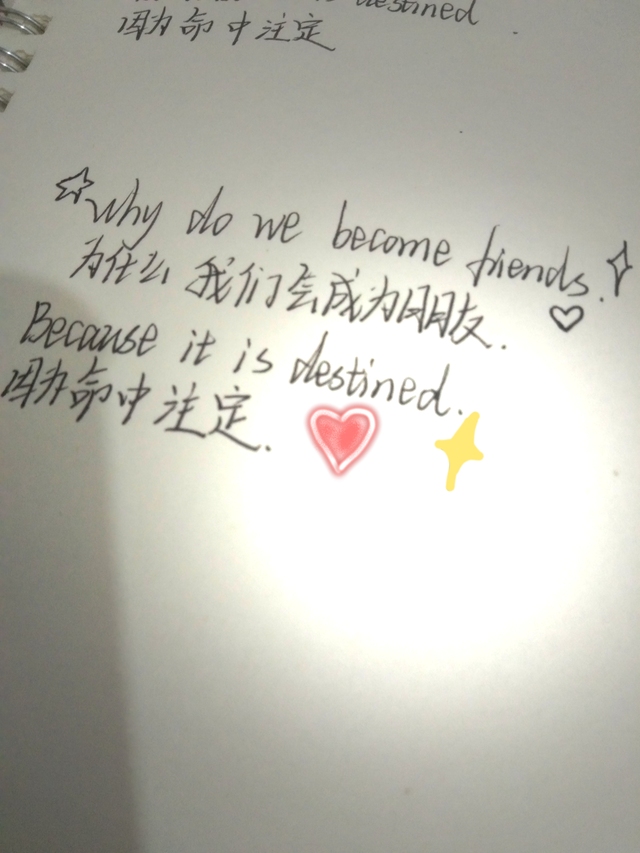 destined
因为命中注定
why do we become friends.
为什么我们会成为朋友.
Because it is destined.
因为命中注定.